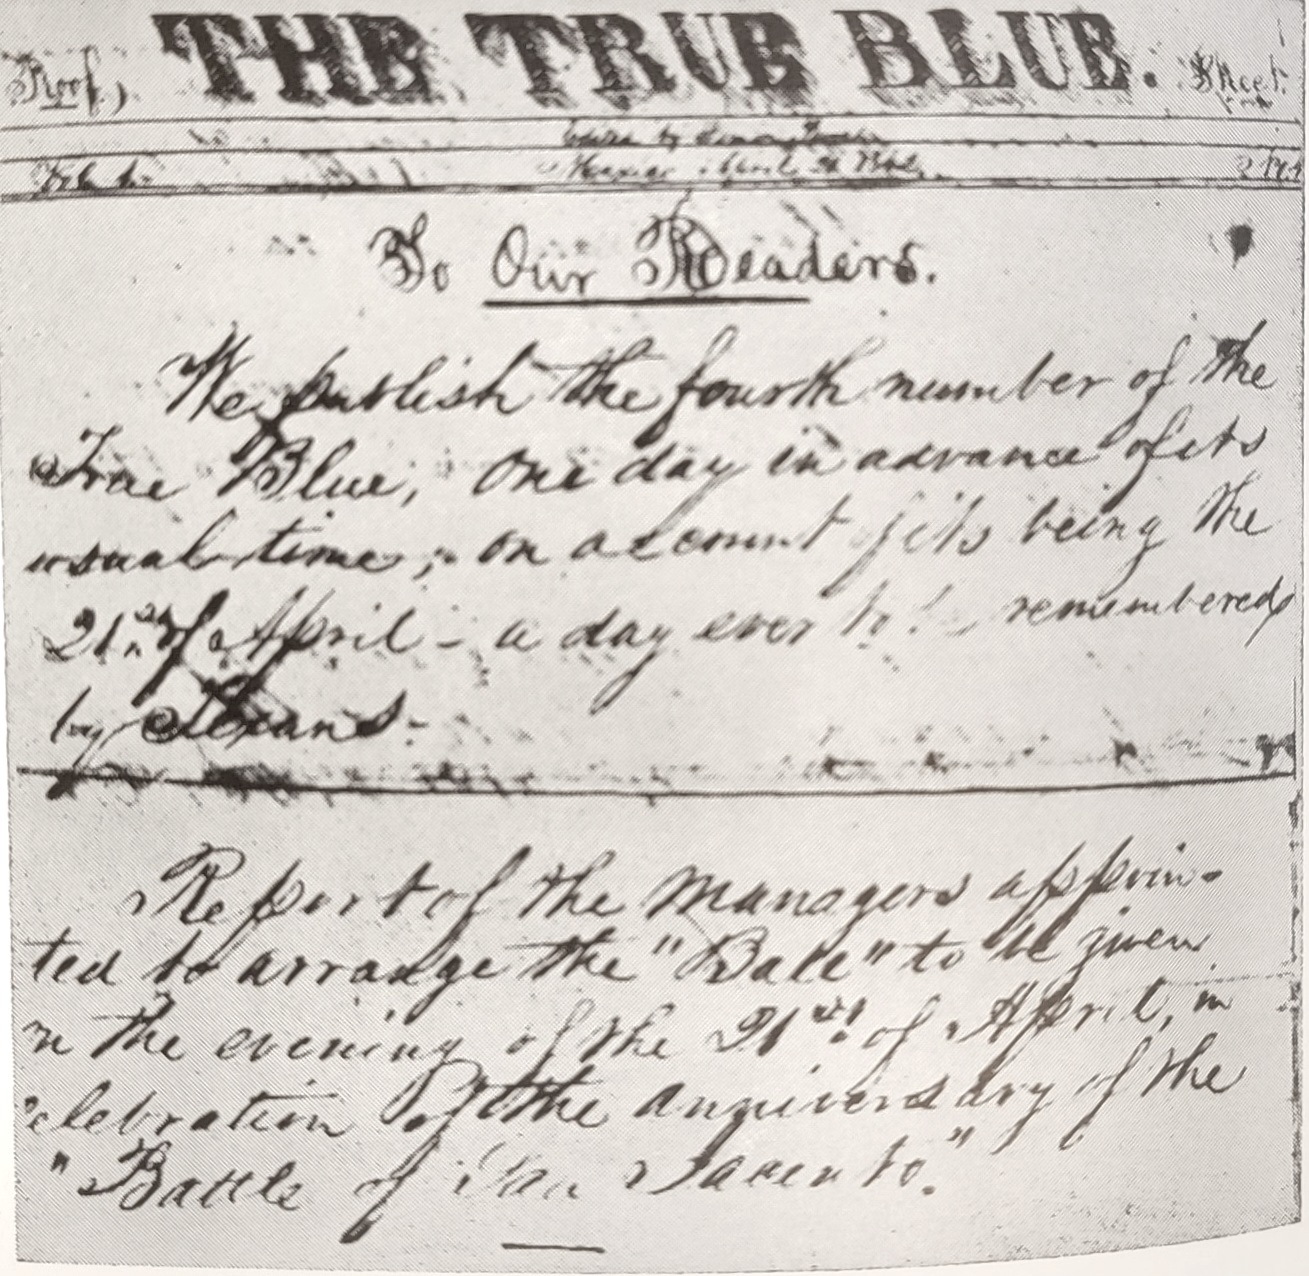 Proof, THE TRUE BLUE. Sheet.
Edited by Simon
April 21
To Our Readers.
We publish the fourth number of the
True Blue, one day in advance of its
usual time; on account of its being the
21st of April - a day ever to be remembered
by Texans.
Report of the Managers appoin-
ted to arrange the "Ball" to be given
on the evening of the 21st of April, in
celebration of the anniversary of the
"Battle of San Jacinto."